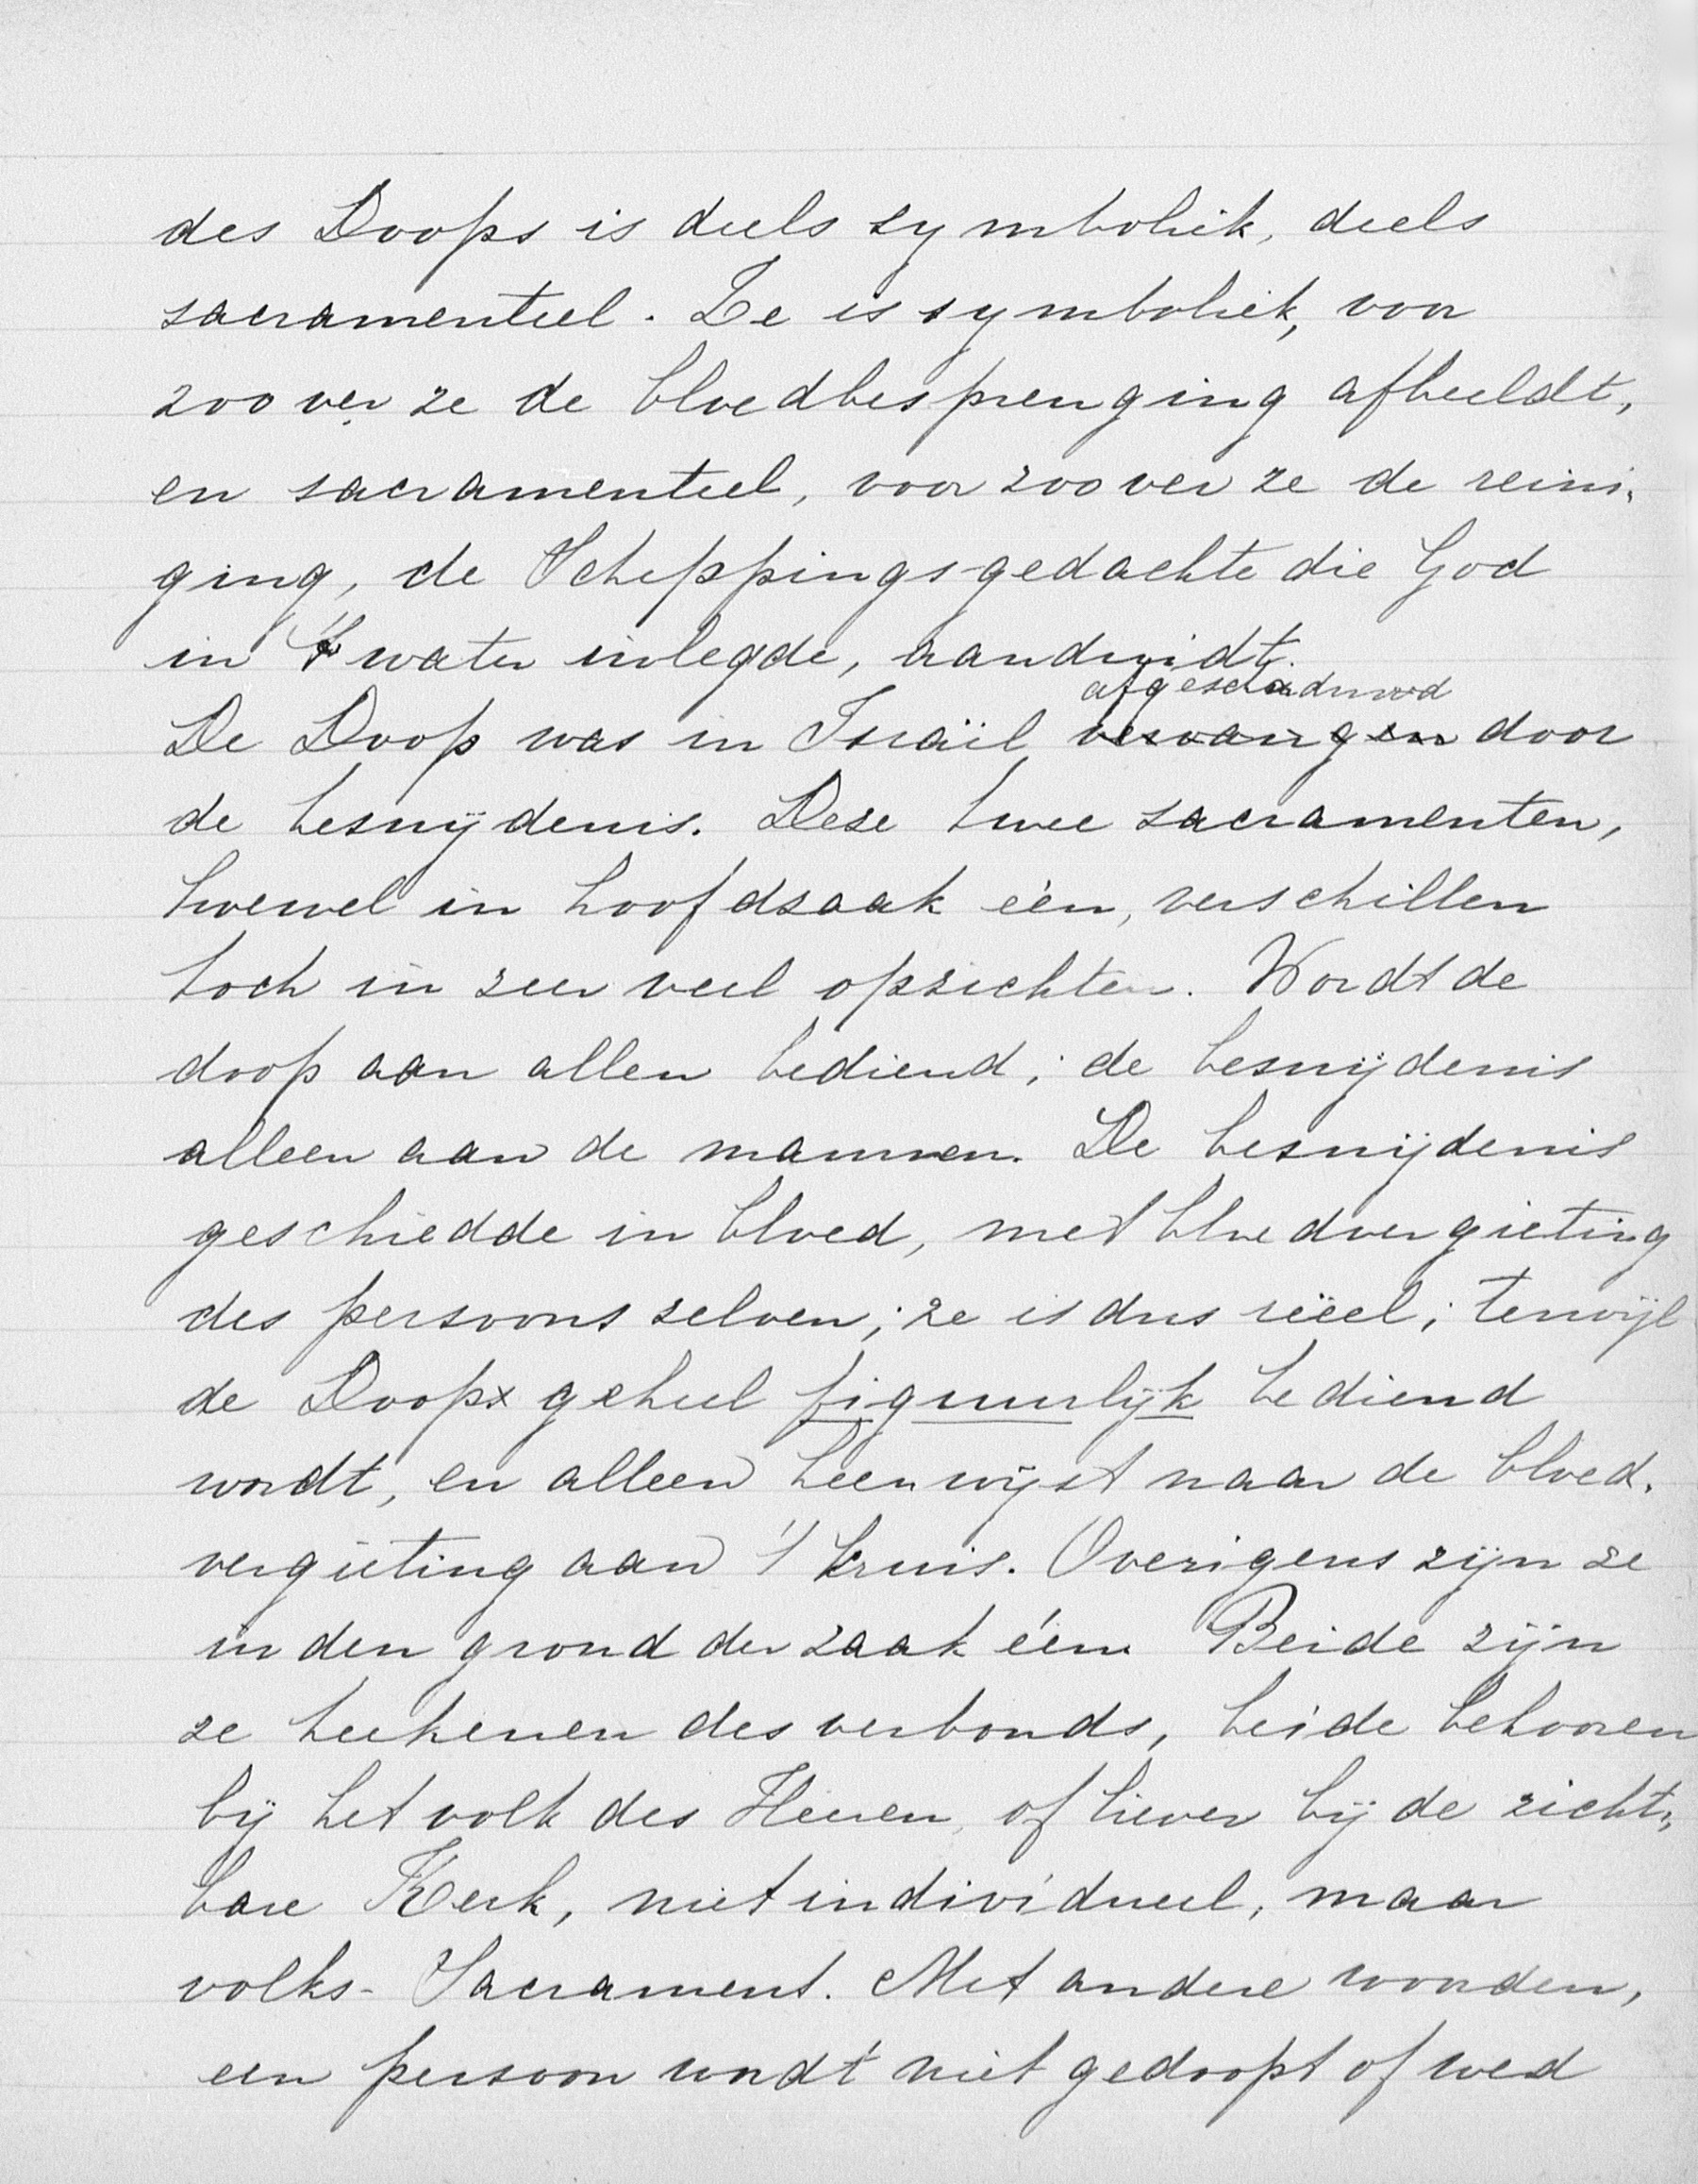 des Doops is deels symboliek, deels
sacramenteel. Ze is symboliek, voor
zoover ze de bloedbesprenging afbeeldt,
en sacramenteel, voor zoover ze de reini-
ging, de Scheppings-gedachte die God
in 't water inlegde, aanduidt.
afgeschaduwd
De Doop was in Israël vervangen door
de besnijdenis. Deze twee sacramenten,
hoewel in hoofdzaak één, verschillen
toch in zeer veel opzichten. Wordt de
doop aan allen bediend; de besnijdenis
alleen aan de mannen. De besnijdenis
geschiedde in bloed, met bloedvergieting
des persoons zelven; ze is dus reëel; terwijl
de Doop geheel figuurlijk bediend
wordt, en alleen heenwijst naar de bloed-
vergieting aan 't kruis. Overigens zijn ze
in den grond der zaak één. Beide zijn
ze teekenen des verbonds, beide behooren
bij het volk des Heeren, of liever bij de zicht-
bare Kerk, niet individueel, maar
volks-Sacrament. Met andere woorden,
een persoon wordt niet gedoopt of werd